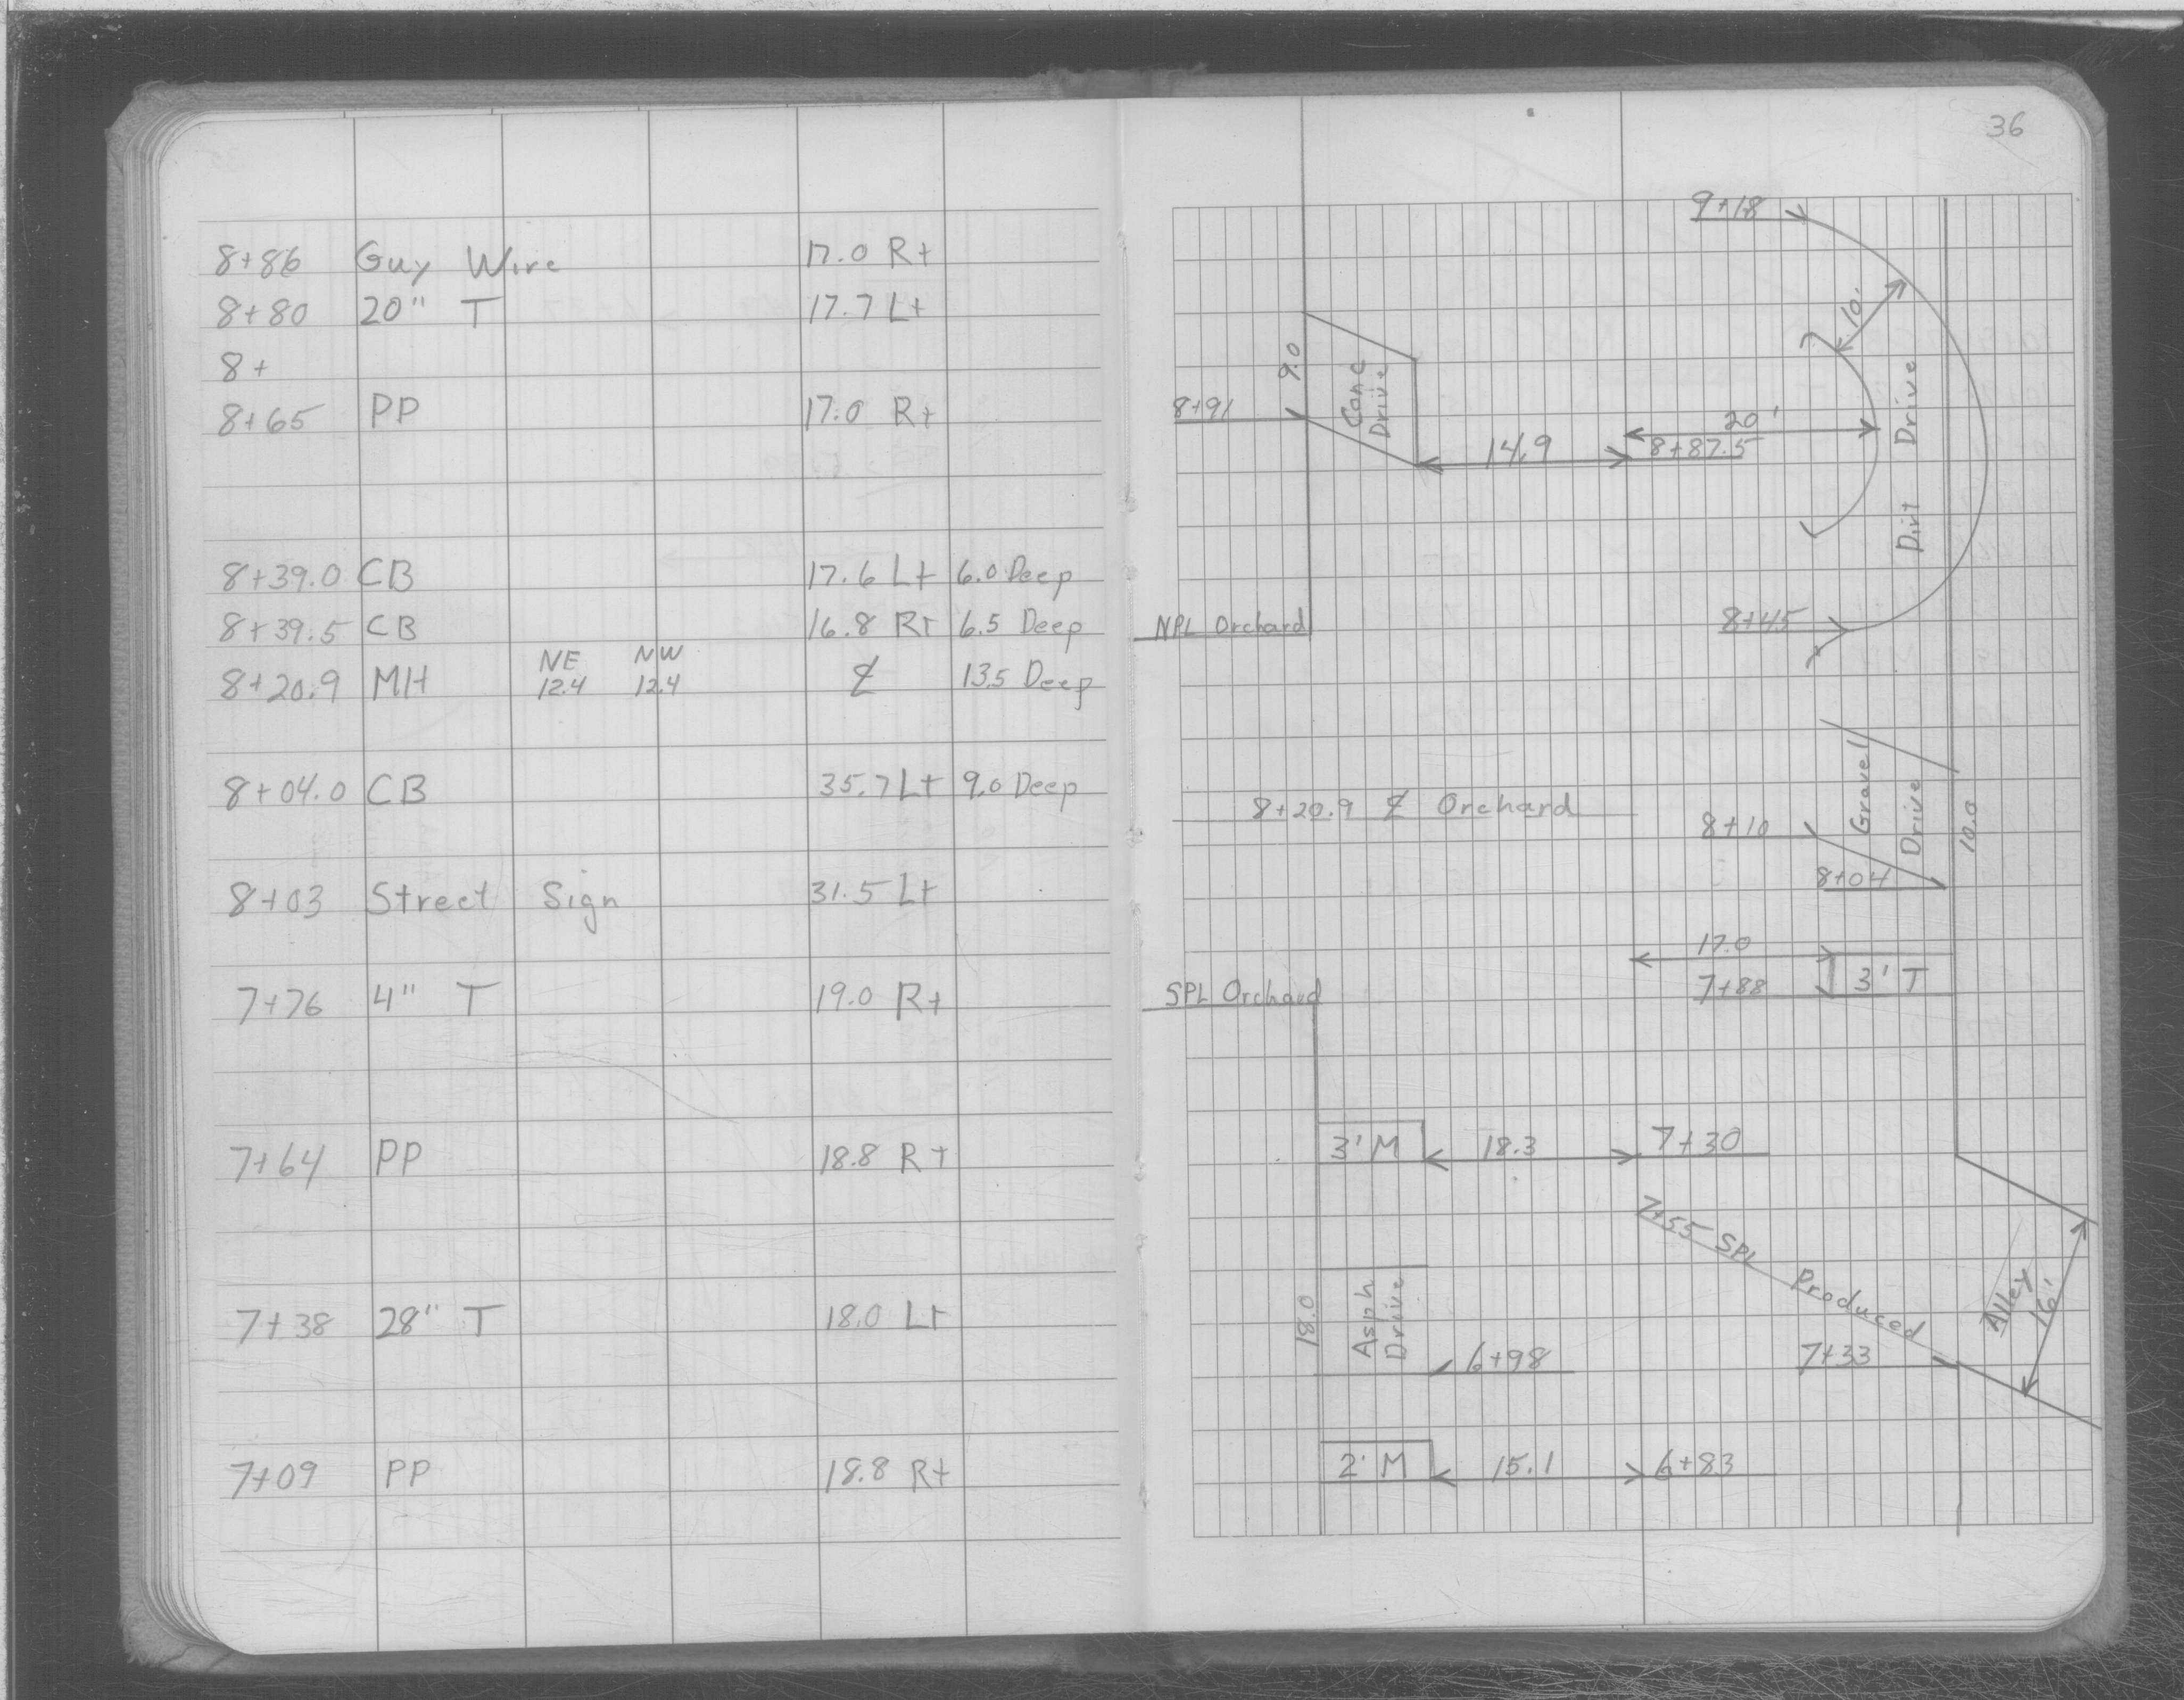 36
8+86 Guy Wire 17.0 Rt
8+80 20" T 17.7 Lt
8+
8+65 PP 17.0 Rt
8+39.0 CB 17.6 Lt 6.0 Deep
8+39.5 CB 16.8 Rt 6.5 Deep
NE NW
8+20.9 MH 12.4 12.4 ℄ 13.5 Deep
8+04.0 CB 35.7 Lt 9.0 Deep
8+03 Street Sign 31.5 Lt
7+76 4" T 19.0 Rt
7+64 PP 18.8 Rt
7+38 28" T 18.0 Lt
7+09 PP 18.8 Rt
9+18
10'
9.0
Conc
Drive
8+91
20'
14.9
8+87.5
Dirt Drive
NPL Orchard
8+45
Gravel
Drive
8+20.9 ℄ Orchard
8+10
10.0
8+04
17.0
SPL Orchard
7+88
3' T
3' M
18.3
7+30
7+55 SPL Produced
Alley
16'
18.0
Asph
Drive
6+98
7+33
2' M
15.1
6+83